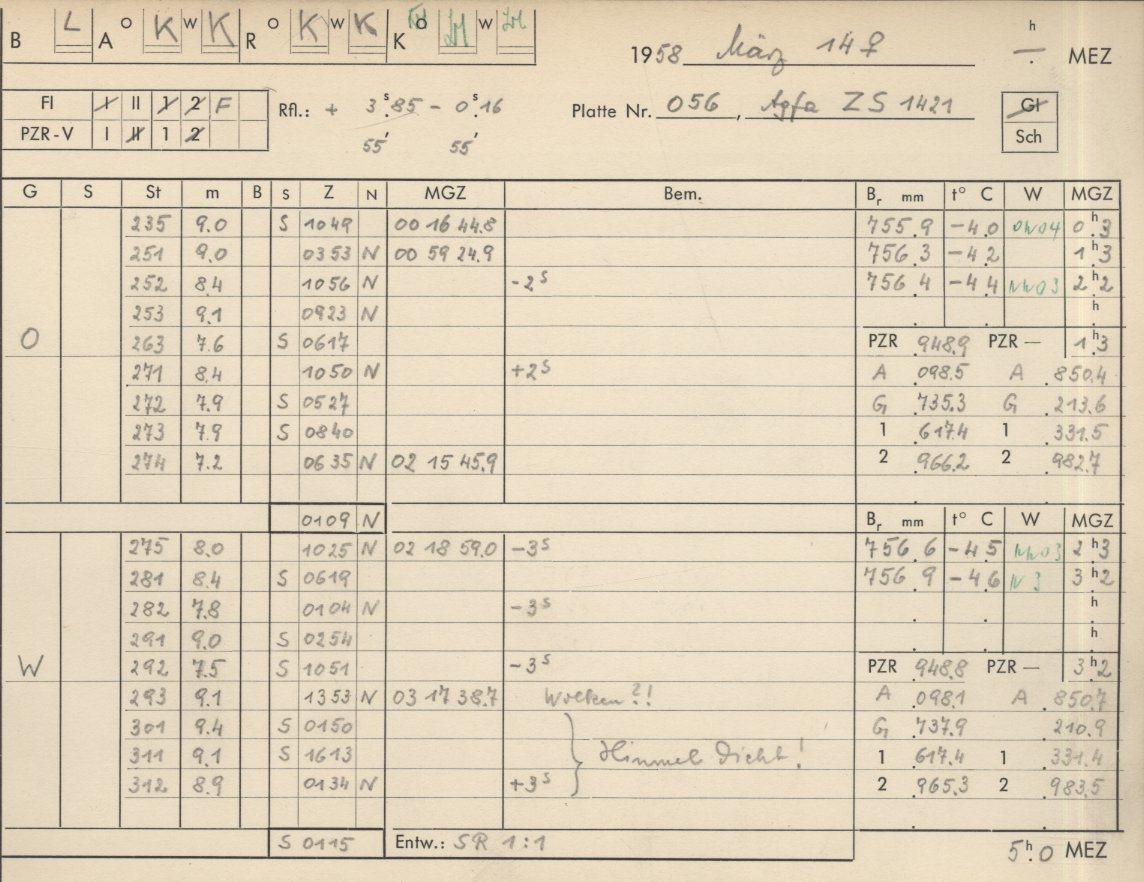 B L A O K W K R O K W K K O W
1958 März 14 ♀ h — . MEZ
FI I II 1 2 F
PZR-V I II 1 2
Rfl.: + 3.ˢ85 - 0.ˢ16
55' 55'
Platte Nr. 056, Agfa ZS 1421
GI
Sch
G S St m B S Z N MGZ Bem. Bᵣ mm t° C W MGZ
235 9.0 S 1049 00 16 44.8 755.9 -4.0 0.ʰ3
251 9.0 0353 N 00 59 24.9 756.3 -4.2 1.ʰ3
252 8.4 1056 N -2ˢ 756.4 -4.4 2.ʰ2
253 9.1 0923 N h
O 263 7.6 S 0617 PZR .948.9 PZR — 1.ʰ3
271 8.4 1050 N +2ˢ A .098.5 A .850.4
272 7.9 S 0527 G .735.3 G .213.6
273 7.9 S 0840 1 .617.4 1 .331.5
274 7.2 0635 N 02 15 45.9 2 .966.2 2 .982.7
0109 N Bᵣ mm t° C W MGZ
275 8.0 1025 N 02 18 59.0 -3ˢ 756.6 -4.5 2.ʰ3
281 8.4 S 0619 756.9 -4.6 N 3 3.ʰ2
282 7.8 0104 N -3ˢ h
291 9.0 S 0254 h
W 292 7.5 S 1051 -3ˢ PZR .948.8 PZR — 3.ʰ2
293 9.1 1353 N 03 17 38.7 Wolken?! A .098.1 A .850.7
301 9.4 S 0150 G .737.9 .210.9
311 9.1 S 1613 Himmel dicht! 1 .617.4 1 .331.4
312 8.9 0134 N +3ˢ 2 .965.3 2 .983.5
S 0115 Entw.: SR 1:1
5.ʰ0 MEZ